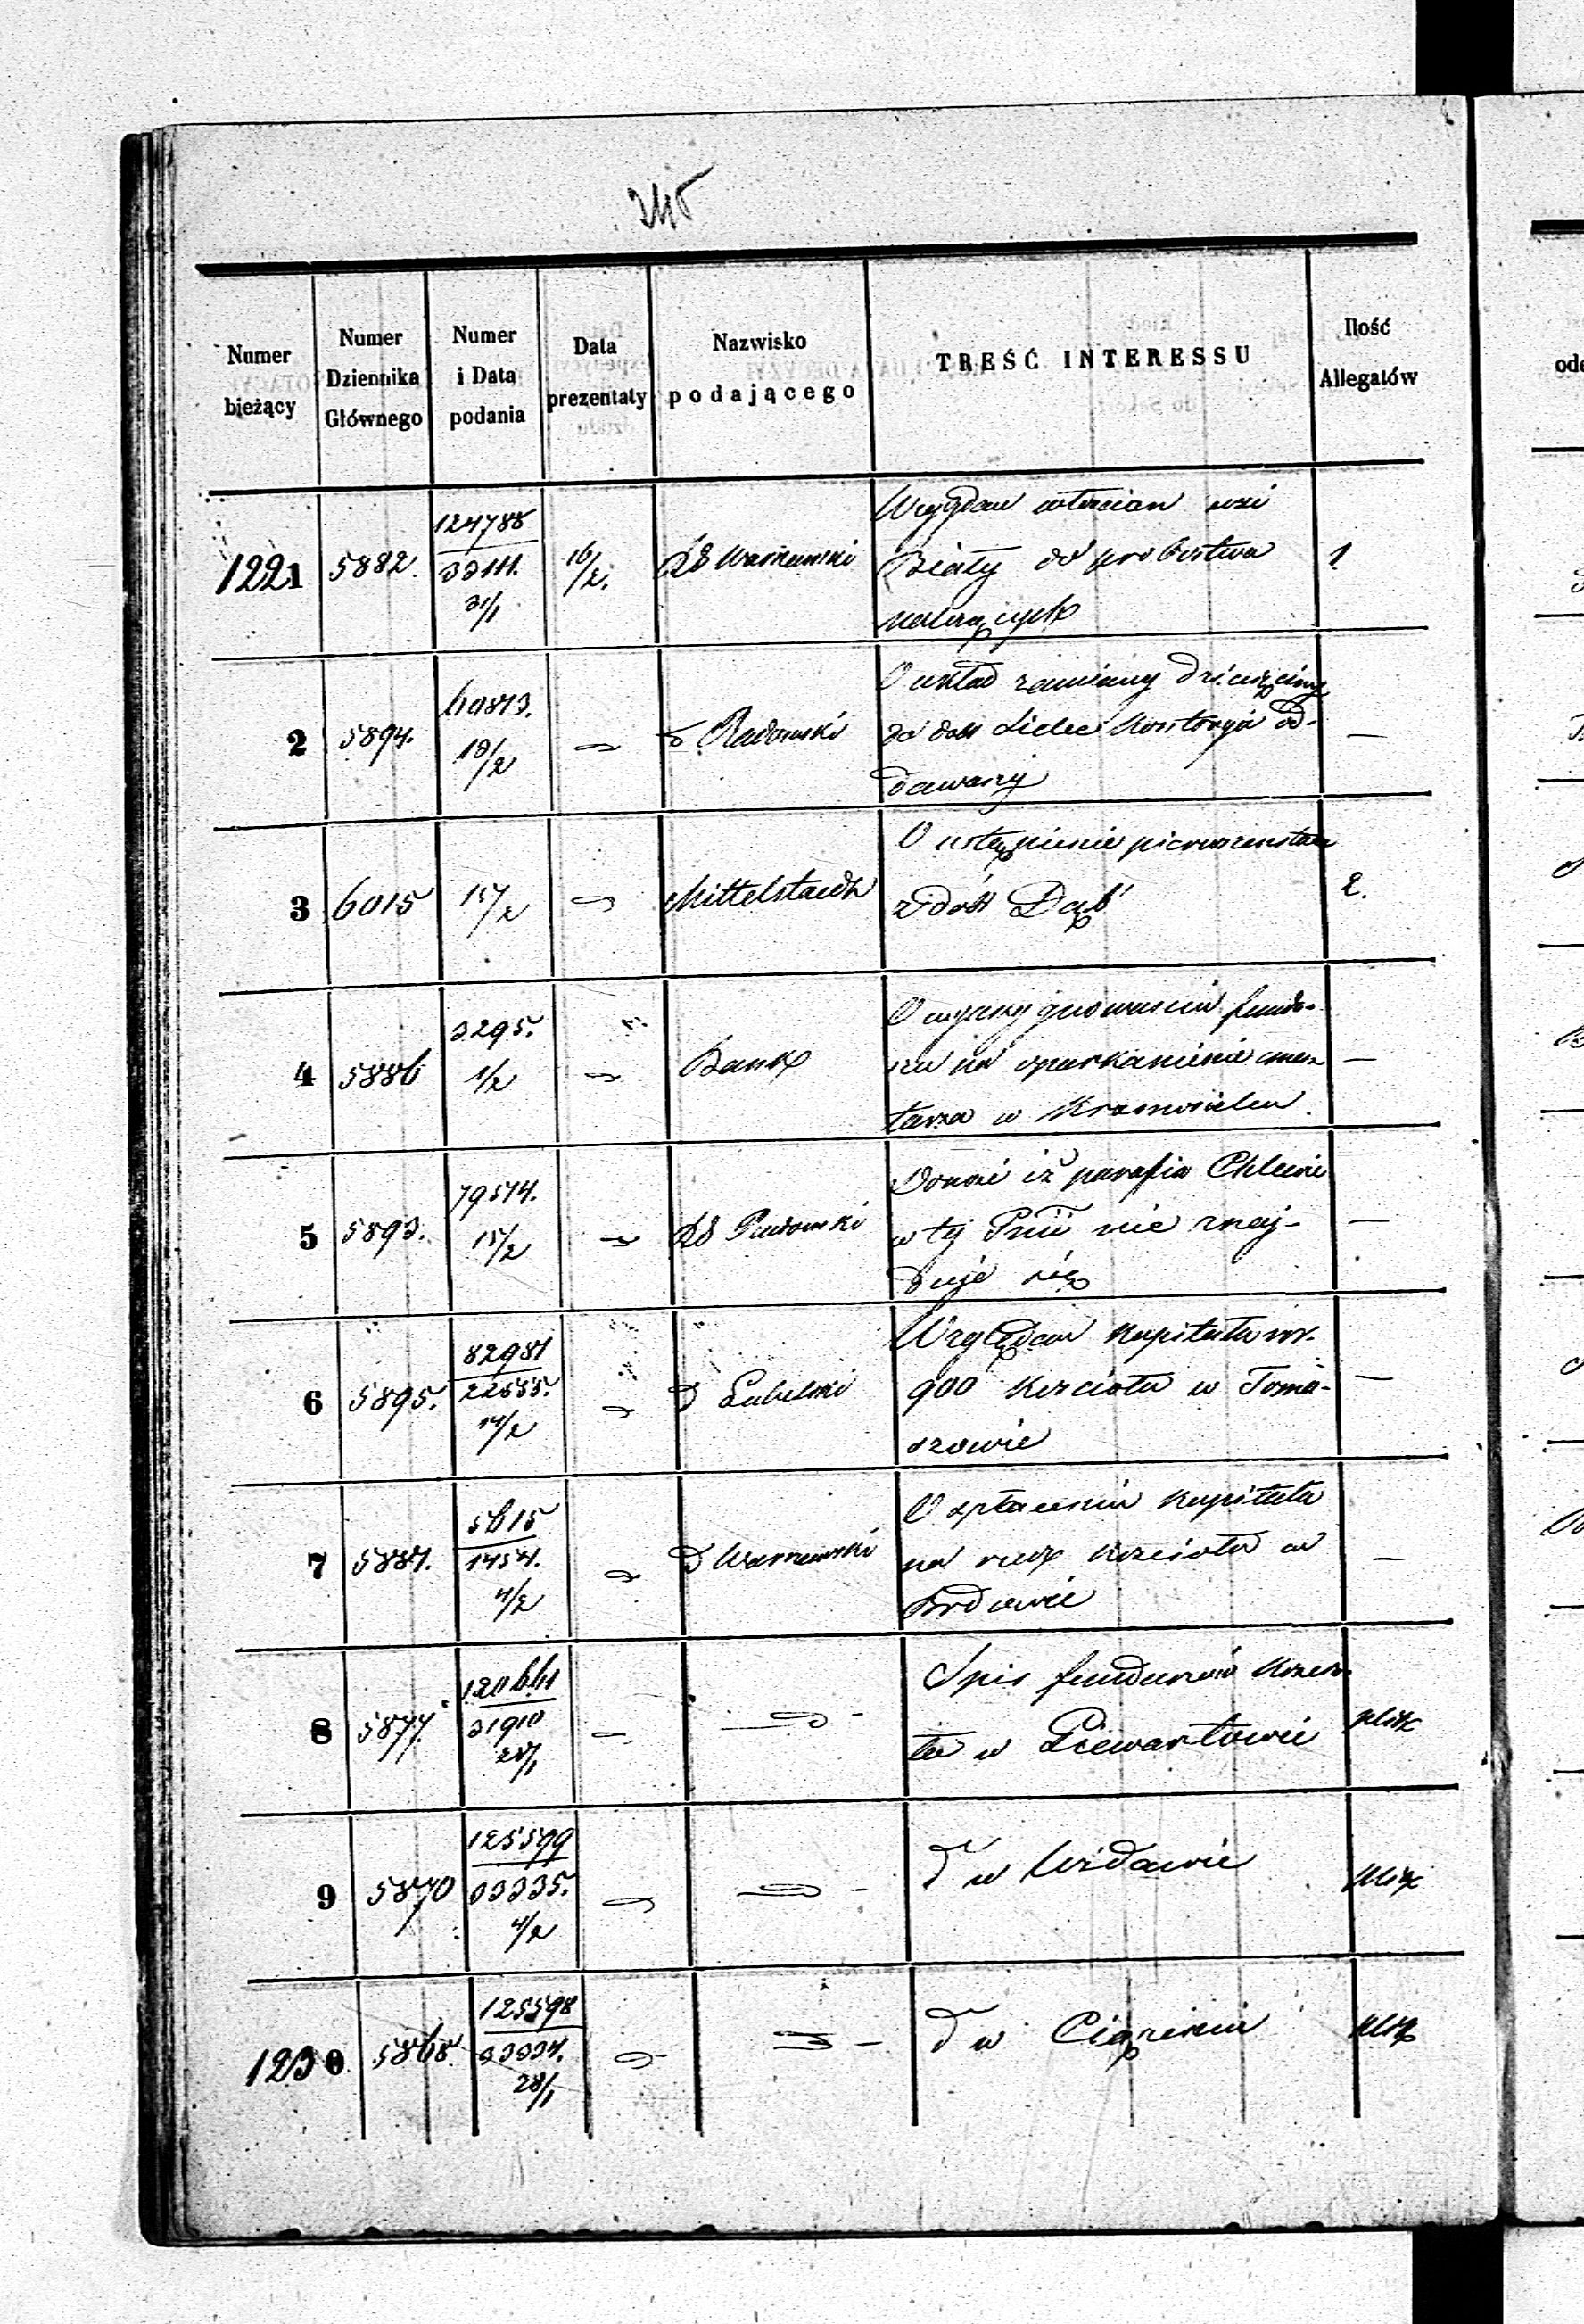 245
Numer bieżący
Numer Dziennika Głównego
Numer i Data podania
Data prezentaty
Nazwisko podającego
TREŚĆ INTERESSU
Ilość Allegatów
1221
5882.
124788
33111.
31/1
16/2.
Warszawski
Względem włościan wsi
Biały do probostwa
należących
1
2
5894.
60873.
13/2
Radomski
O układ zamiany dziesięciny
do dóbr Sielec
dawanej
—
3
6015
15/2
Mittelstaedt
O ustąpienie pierwszeństwa
z dóbr Dąb
2.
4
5886
3295.
1/2
Bank
O wyasygnowaniu fundu-
szu na oparkanienie cmen
tarza w Krasnosielcu.
—
5
5893.
79574.
15/2
Radomski
Donosi iż parafia Chlewie
w tej Gnii nie znaj-
duje się
—
6
5895.
82981
22533.
14/2
D Lubelski
Względem kapitału rsr.
900 kościoła w Toma-
szowie
—
7
5881.
5615
1454.
4/2
D Warszawski
O spłaceniu kapitału
na rzecz kościoła w
Brdowie
—
8
5877.
120661
31910
28/1
Spis funduszów kościo
ła w Liewartowie
plik
9
5870
125599
33335.
4/2
d° w Widawie
plik
1230
5868.
125598
33334.
28/1
d° w Ciążeniu
plik